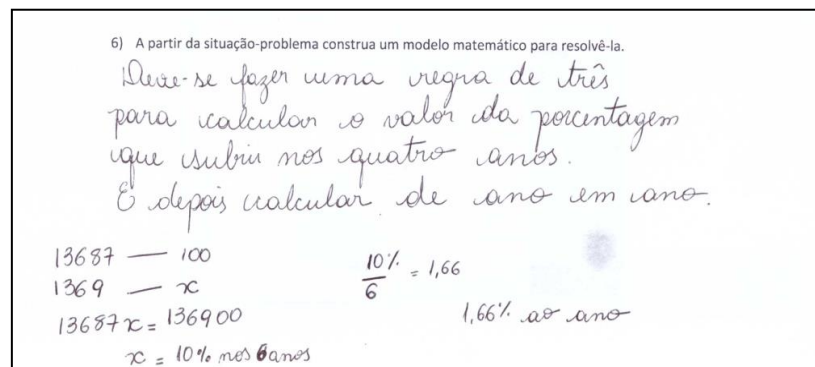 6) A partir da situação-problema construa um modelo matemático para resolvê-la.
Deve-se fazer uma regra de três
para calcular o valor da porcentagem
que subiu nos quatro anos.
E depois calcular de ano em ano.
13687 — 100
1369 — x
13687x = 136900
x = 10% nos 6 anos
10% / 6 = 1,66
1,66% ao ano